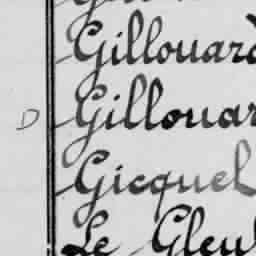 Gillouard
D Gillouar
Gicquel
Le Gleu